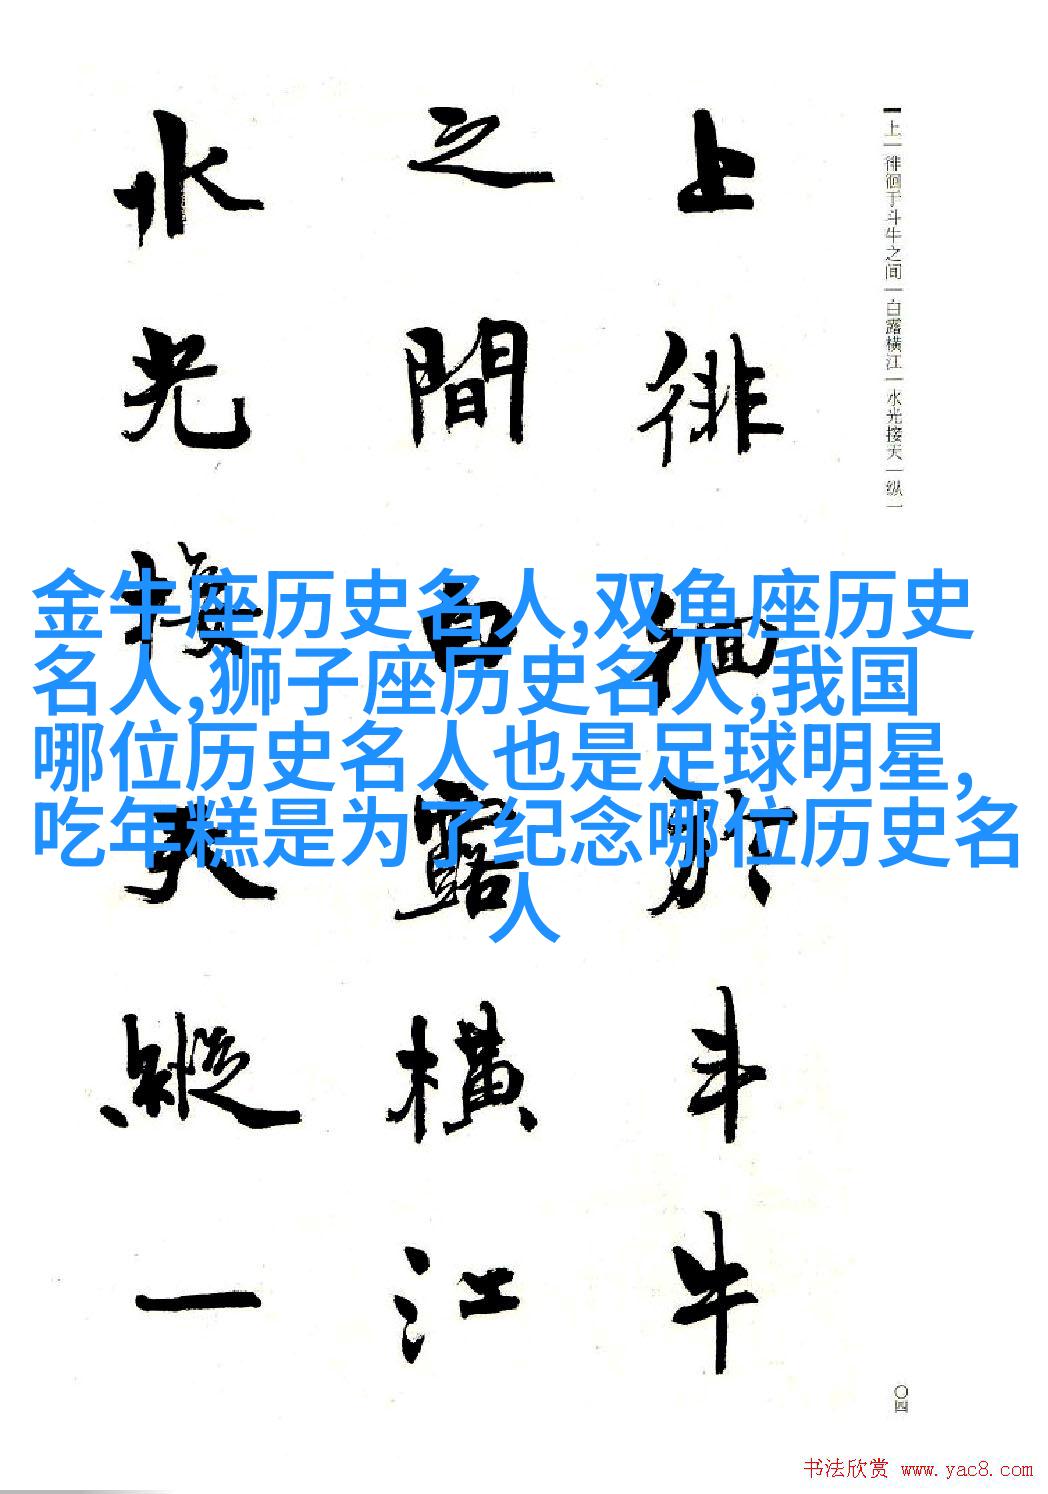 上徘徊於斗牛
之間白露橫江
水光接天縱一
上一徘徊于斗牛之间一白露横江一水光接天一纵一
金牛座历史名人,双鱼座历史
名人,狮子座历史名人,我国
哪位历史名人也是足球明星,
吃年糕是为了纪念哪位历史名
人
〇四
书法欣赏 www.yac8.com